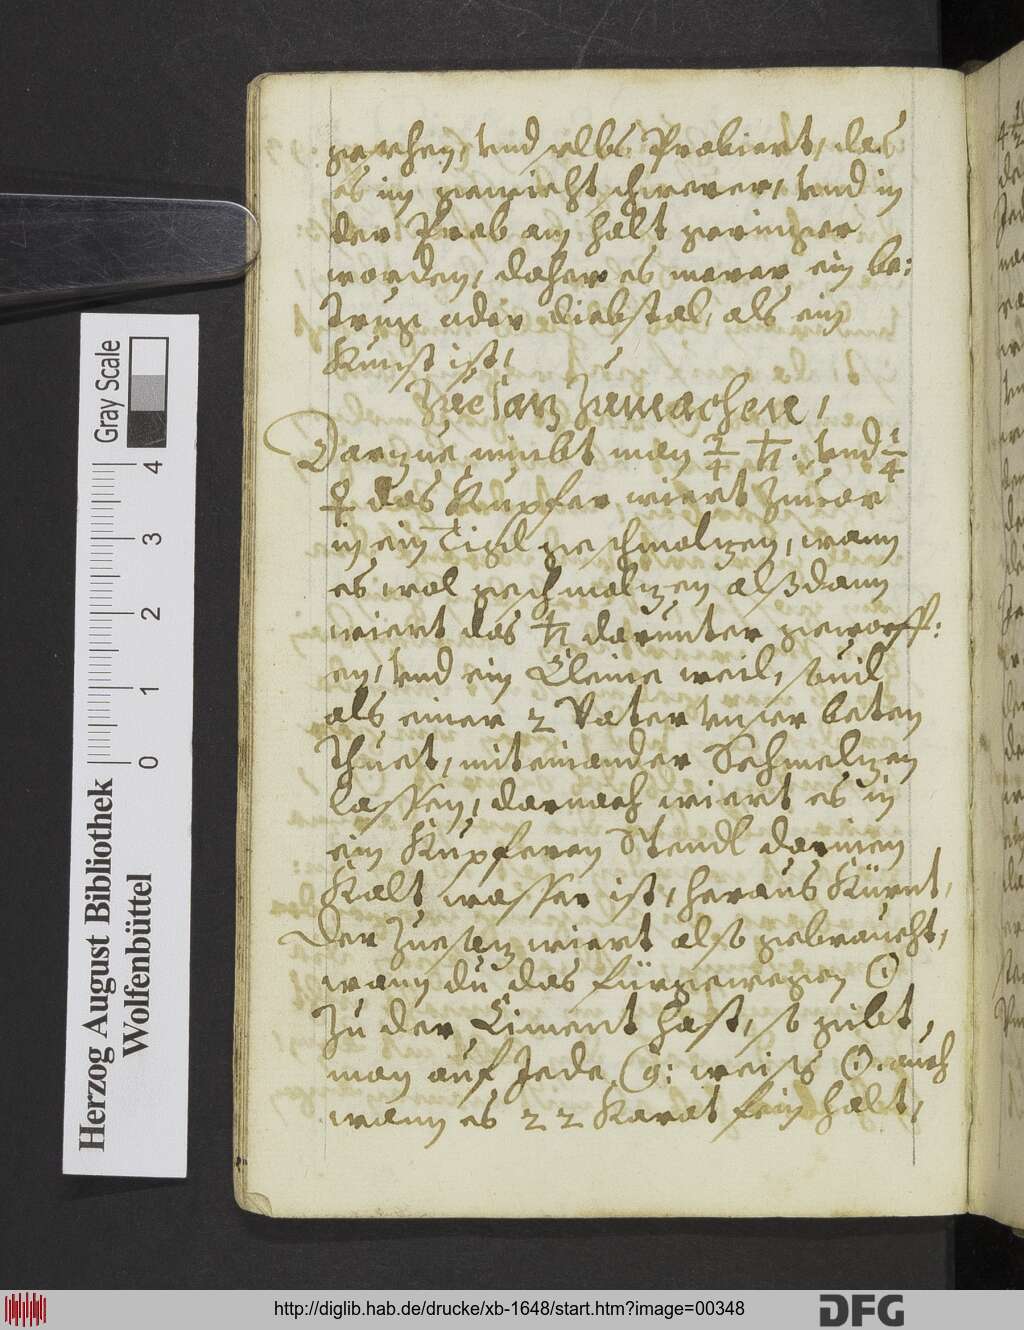 geschen, vnd selbs Probiert, das
es im gewicht schwerer, vnd in
der Prob am halt geringer
worden, daher es merer ein be:
Trug oder diebstal, als ein
Kunst ist,
Zuesatz Zumachen,
Darzue nimbt man ¾ ♄. vnd ¼
♀ das Kupfer wiert zuuor
in ein Tigl geschmoltzen, wann
es wol geschmoltzen alßdann
wiert das ♄ darunter geworff:
en, vnd ein Cleine weil, souil
als einer 2 Vater vnser beten
Thuet, miteinander Schmeltzen
lassen, darnach wiert es in
ein Kupferen Stendl darinen
Kalt wasser ist, heraus Kürnt,
Der Zuesatz wiert also gebraucht,
wann du das fürgewegen ☉
zu der Ciment hast, so gibt
man auf Jede weiß ☉. auch
wann es 22 Karat fein halt,
Herzog August Bibliothek
Wolfenbüttel
Gray Scale
0 1 2 3 4
http://diglib.hab.de/drucke/xb-1648/start.htm?image=00348
DFG